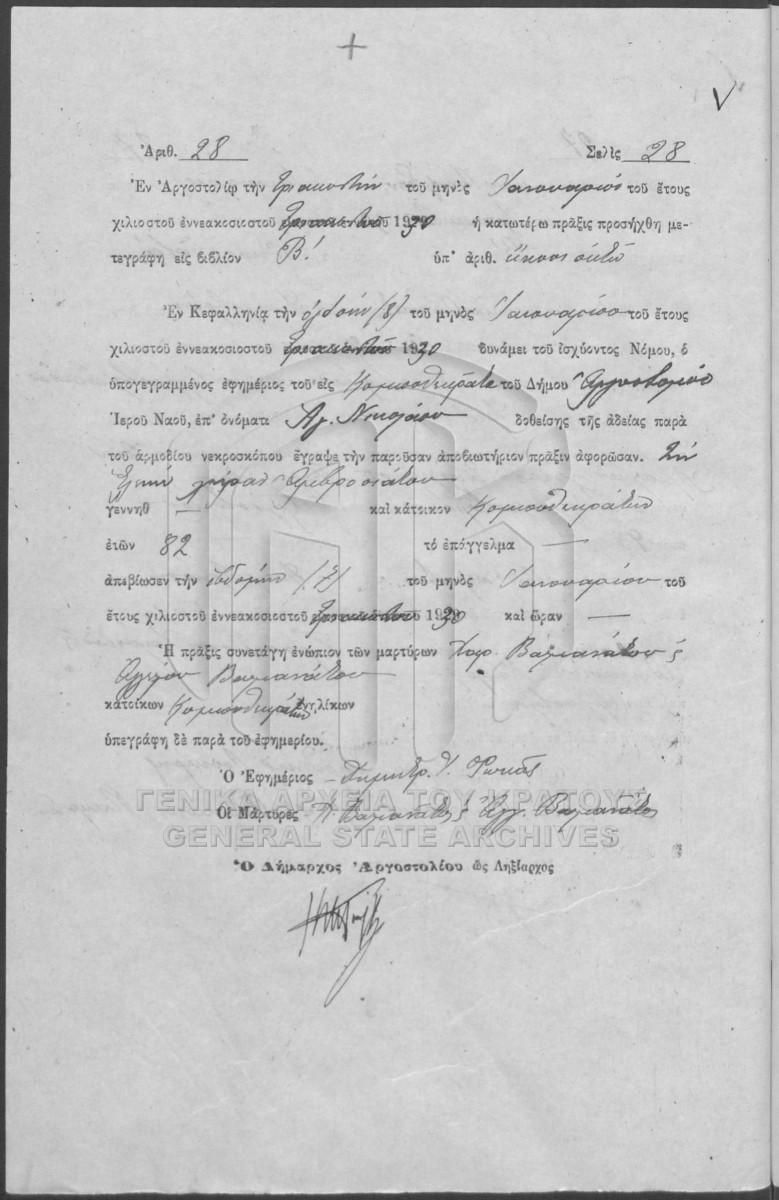 +
V
Ἀριθ. 28 Σελὶς 28
Ἐν Ἀργοστολίῳ τὴν τριακοστήν τοῦ μηνὸς Ἰανουαρίου τοῦ ἔτους
χιλιοστοῦ ἐννεακοσιοστοῦ τριακοστοῦ 1930 ἡ κατωτέρω πρᾶξις προσήχθη με-
τεγράφη εἰς βιβλίον Β! ὑπ' ἀριθ. εἴκοσι οκτώ
Ἐν Κεφαλληνίᾳ τὴν ὀγδόην (8) τοῦ μηνὸς Ἰανουαρίου τοῦ ἔτους
χιλιοστοῦ ἐννεακοσιοστοῦ τριακοστοῦ 1930 δυνάμει τοῦ ἰσχύοντος Νόμου, ὁ
ὑπογεγραμμένος ἐφημέριος τοῦ εἰς Κομποθεκράτα τοῦ Δήμου Ἀργοστολίου
Ἱεροῦ Ναοῦ, ἐπ' ὀνόματι Ἁγ. Νικολάου δοθείσης τῆς ἀδείας παρὰ
τοῦ ἁρμοδίου νεκροσκόπου ἔγραψε τὴν παροῦσαν ἀποβιωτήριον πρᾶξιν ἀφορῶσαν. τήν
Ἑλένην χήραν Ἀμβροσιάτου
γεννηθ — καὶ κάτοικον Κομποθεκράτων
ἐτῶν 82 τὸ ἐπάγγελμα —
ἀπεβίωσεν τὴν ἑβδόμην (7) τοῦ μηνὸς Ἰανουαρίου τοῦ
ἔτους χιλιοστοῦ ἐννεακοσιοστοῦ τριακοστοῦ 1930 καὶ ὥραν —
Ἡ πρᾶξις συνετάγη ἐνώπιον τῶν μαρτύρων Βαγιανάτου &
Βαγιανάτου
κατοίκων Κομποθεκράτων ἐνηλίκων
ὑπεγράφη δὲ παρὰ τοῦ ἐφημερίου.
Ὁ Ἐφημέριος Δημητρ. Φωκᾶς
ΓΕΝΙΚΑ ΑΡΧΕΙΑ ΤΟΥ ΚΡΑΤΟΥΣ
Οἱ Μάρτυρες Βαγιανάτος & Ἀγγ. Βαγιανάτος
GENERAL STATE ARCHIVES
Ὁ Δήμαρχος Ἀργοστολίου ὡς Ληξίαρχος